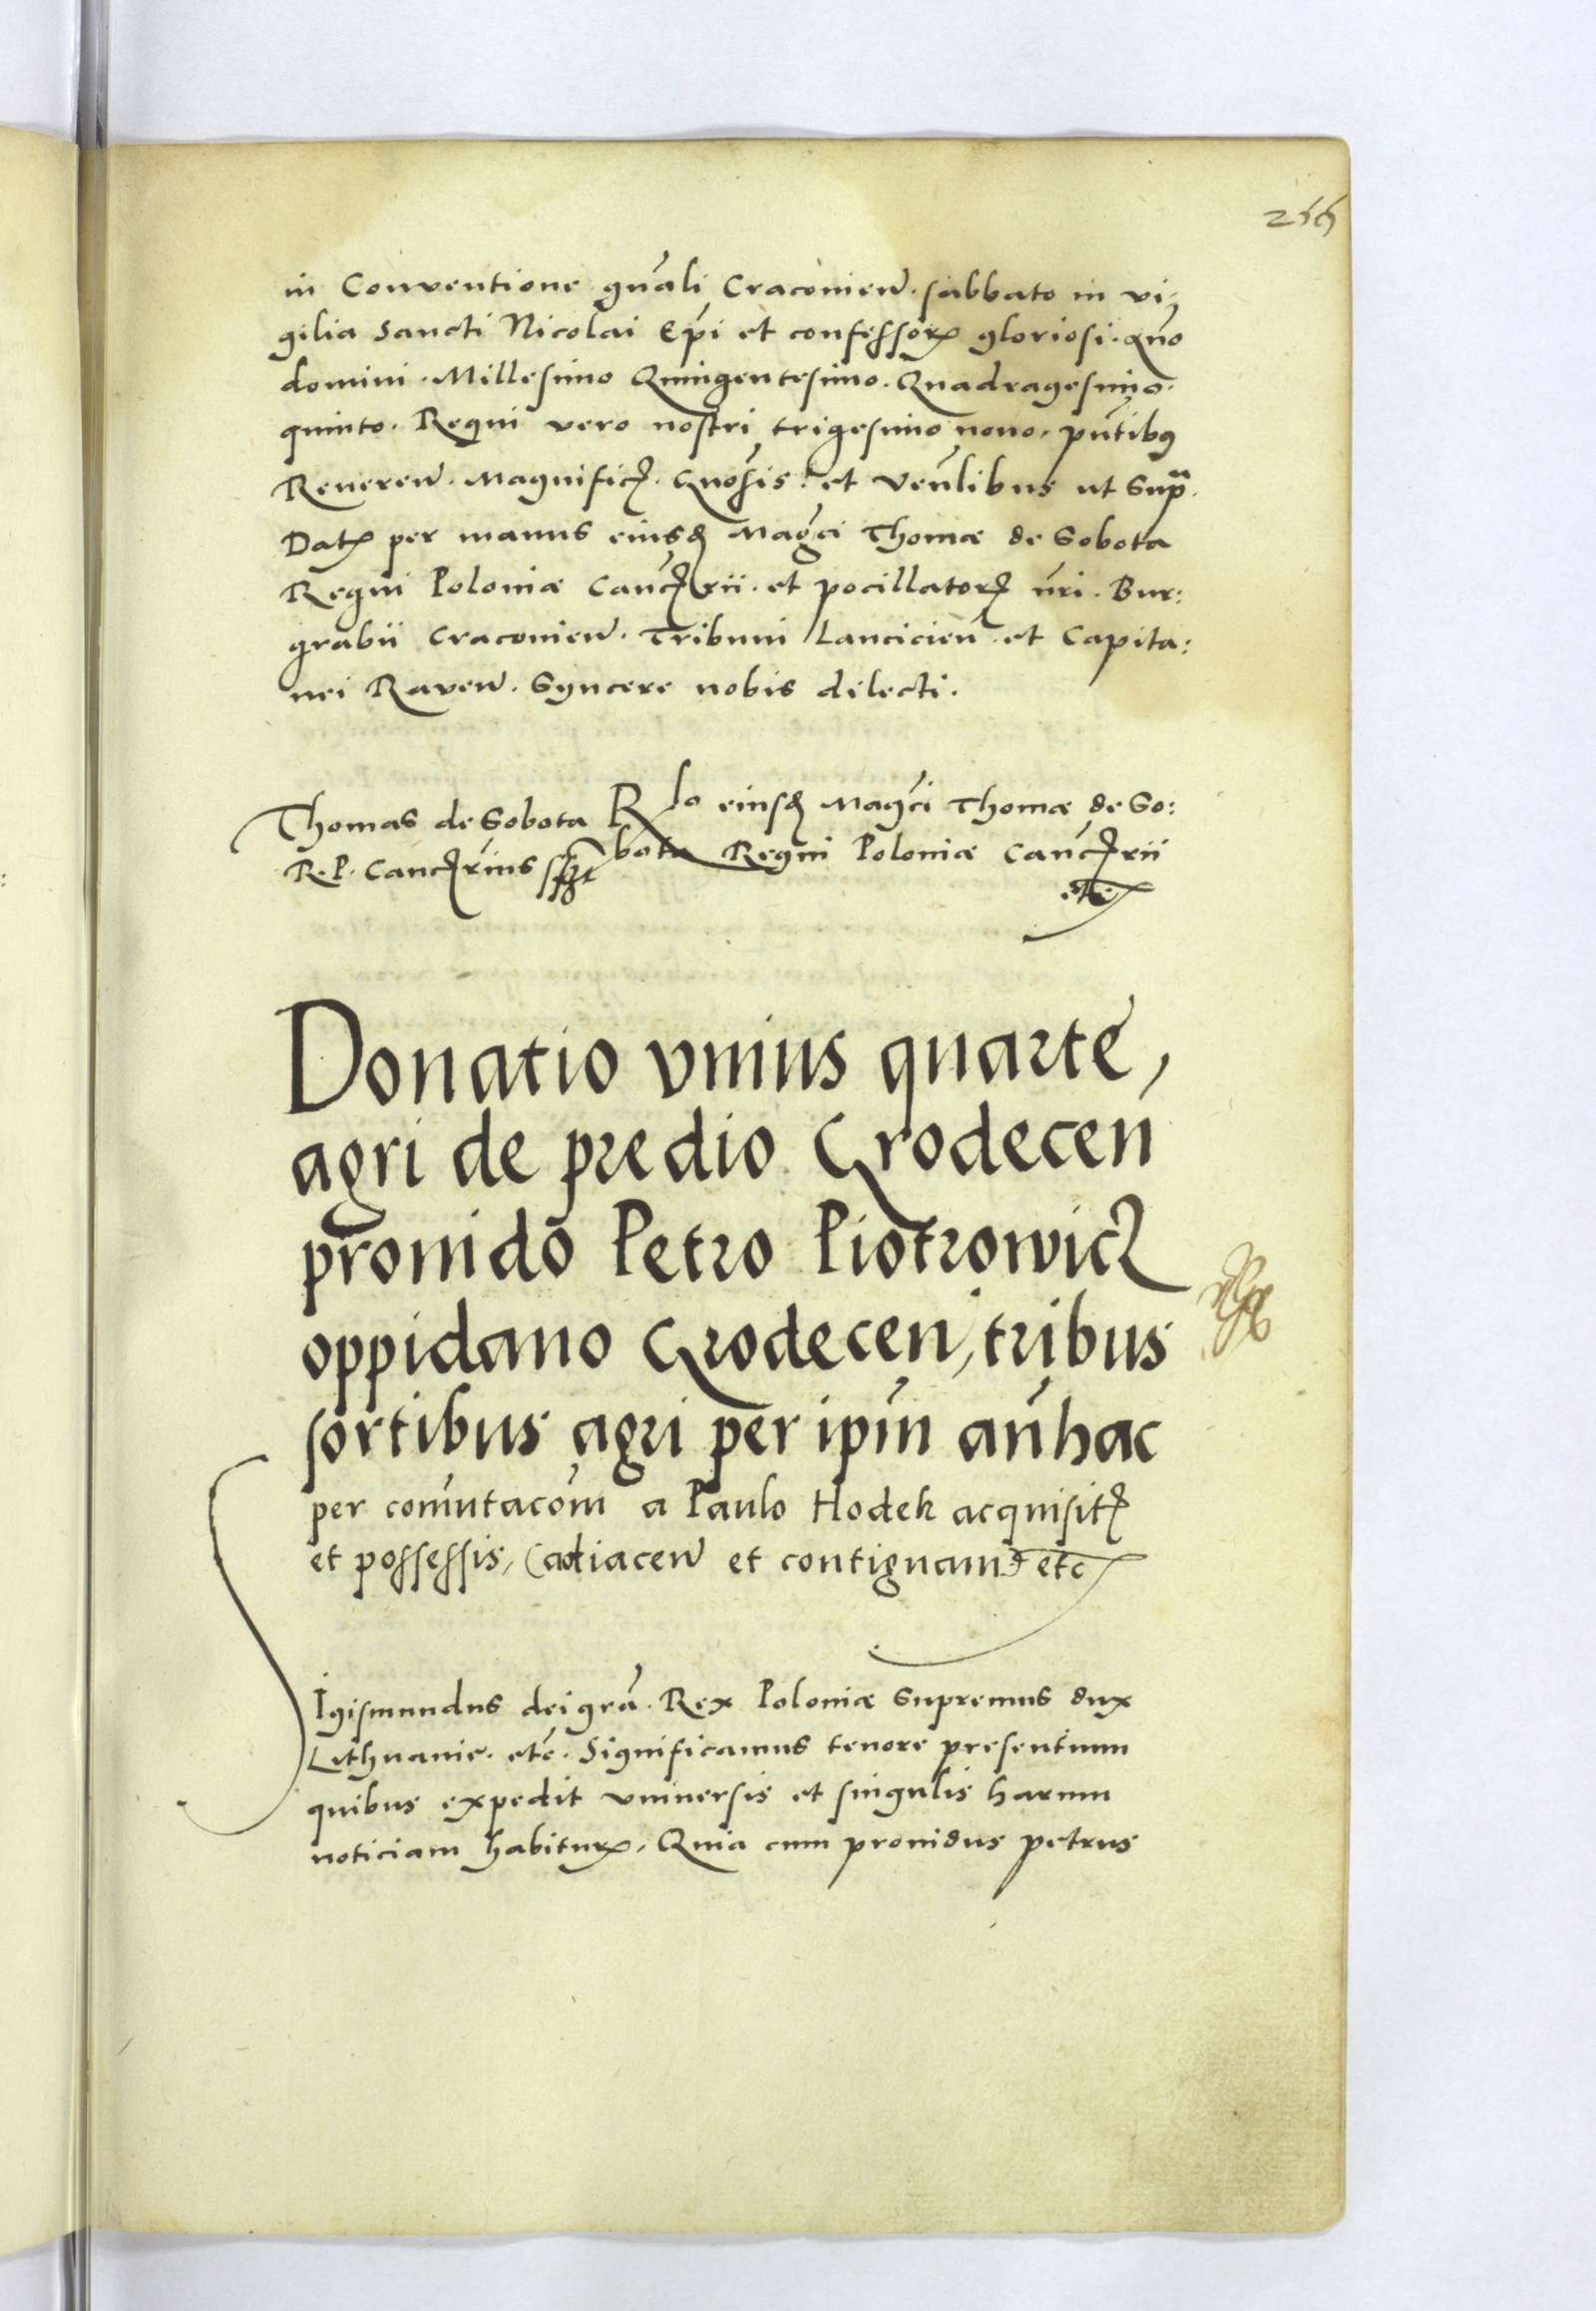 in Conventione gnāli Craconien̄. sabbato in vi⸗
gilia Sancti Nicolai Ep̄i et confessoꝝ gloriosi. Año
domini. Millesimo Quingentesimo. Quadragesimo.
quinto. Regni vero nostri trigesimo nono. pn̄tibꝰ
Reueren̄. Magnificꝭ. Gn̄osis. et Ven̄libus ut Supª.
Datꝭ per manus eiusdꝭ Mag̃ci Thomæ de Sobota
Regni Poloniæ Canc̃ꝭrii. et pocillatorꝭ ñri. Bur:
grabii Craconien̄. Tribuni Lancicien̄. et Capita:
nei Raven̄. Syncere nobis dilecti.
Thomas de Sobota
R. P. Canc̃ꝭrius sszt
Rlo eiusdꝭ Mag̃ci Thomæ de So:
bota Regni Poloniæ Canc̃ꝭrii
etc.
Donatio vnius quarte,
agri de predio Grodecen̄
prouido Petro Piotrowicz
oppidano Grodecen̄, tribus
sortibus agri per ip̄m an̄hac
per com̄utacõm a Paulo Hodek acquisitꝭ
et possessis, (adiacen̄ et contiguam) etc
Igismundus dei grã. Rex Poloniæ Supremus dux
Lithuanie. etc̃. Significamus tenore presentium
quibus expedit vniuersis et singulis harum
noticiam habiturꝭ. Quia cum prouidus petrus